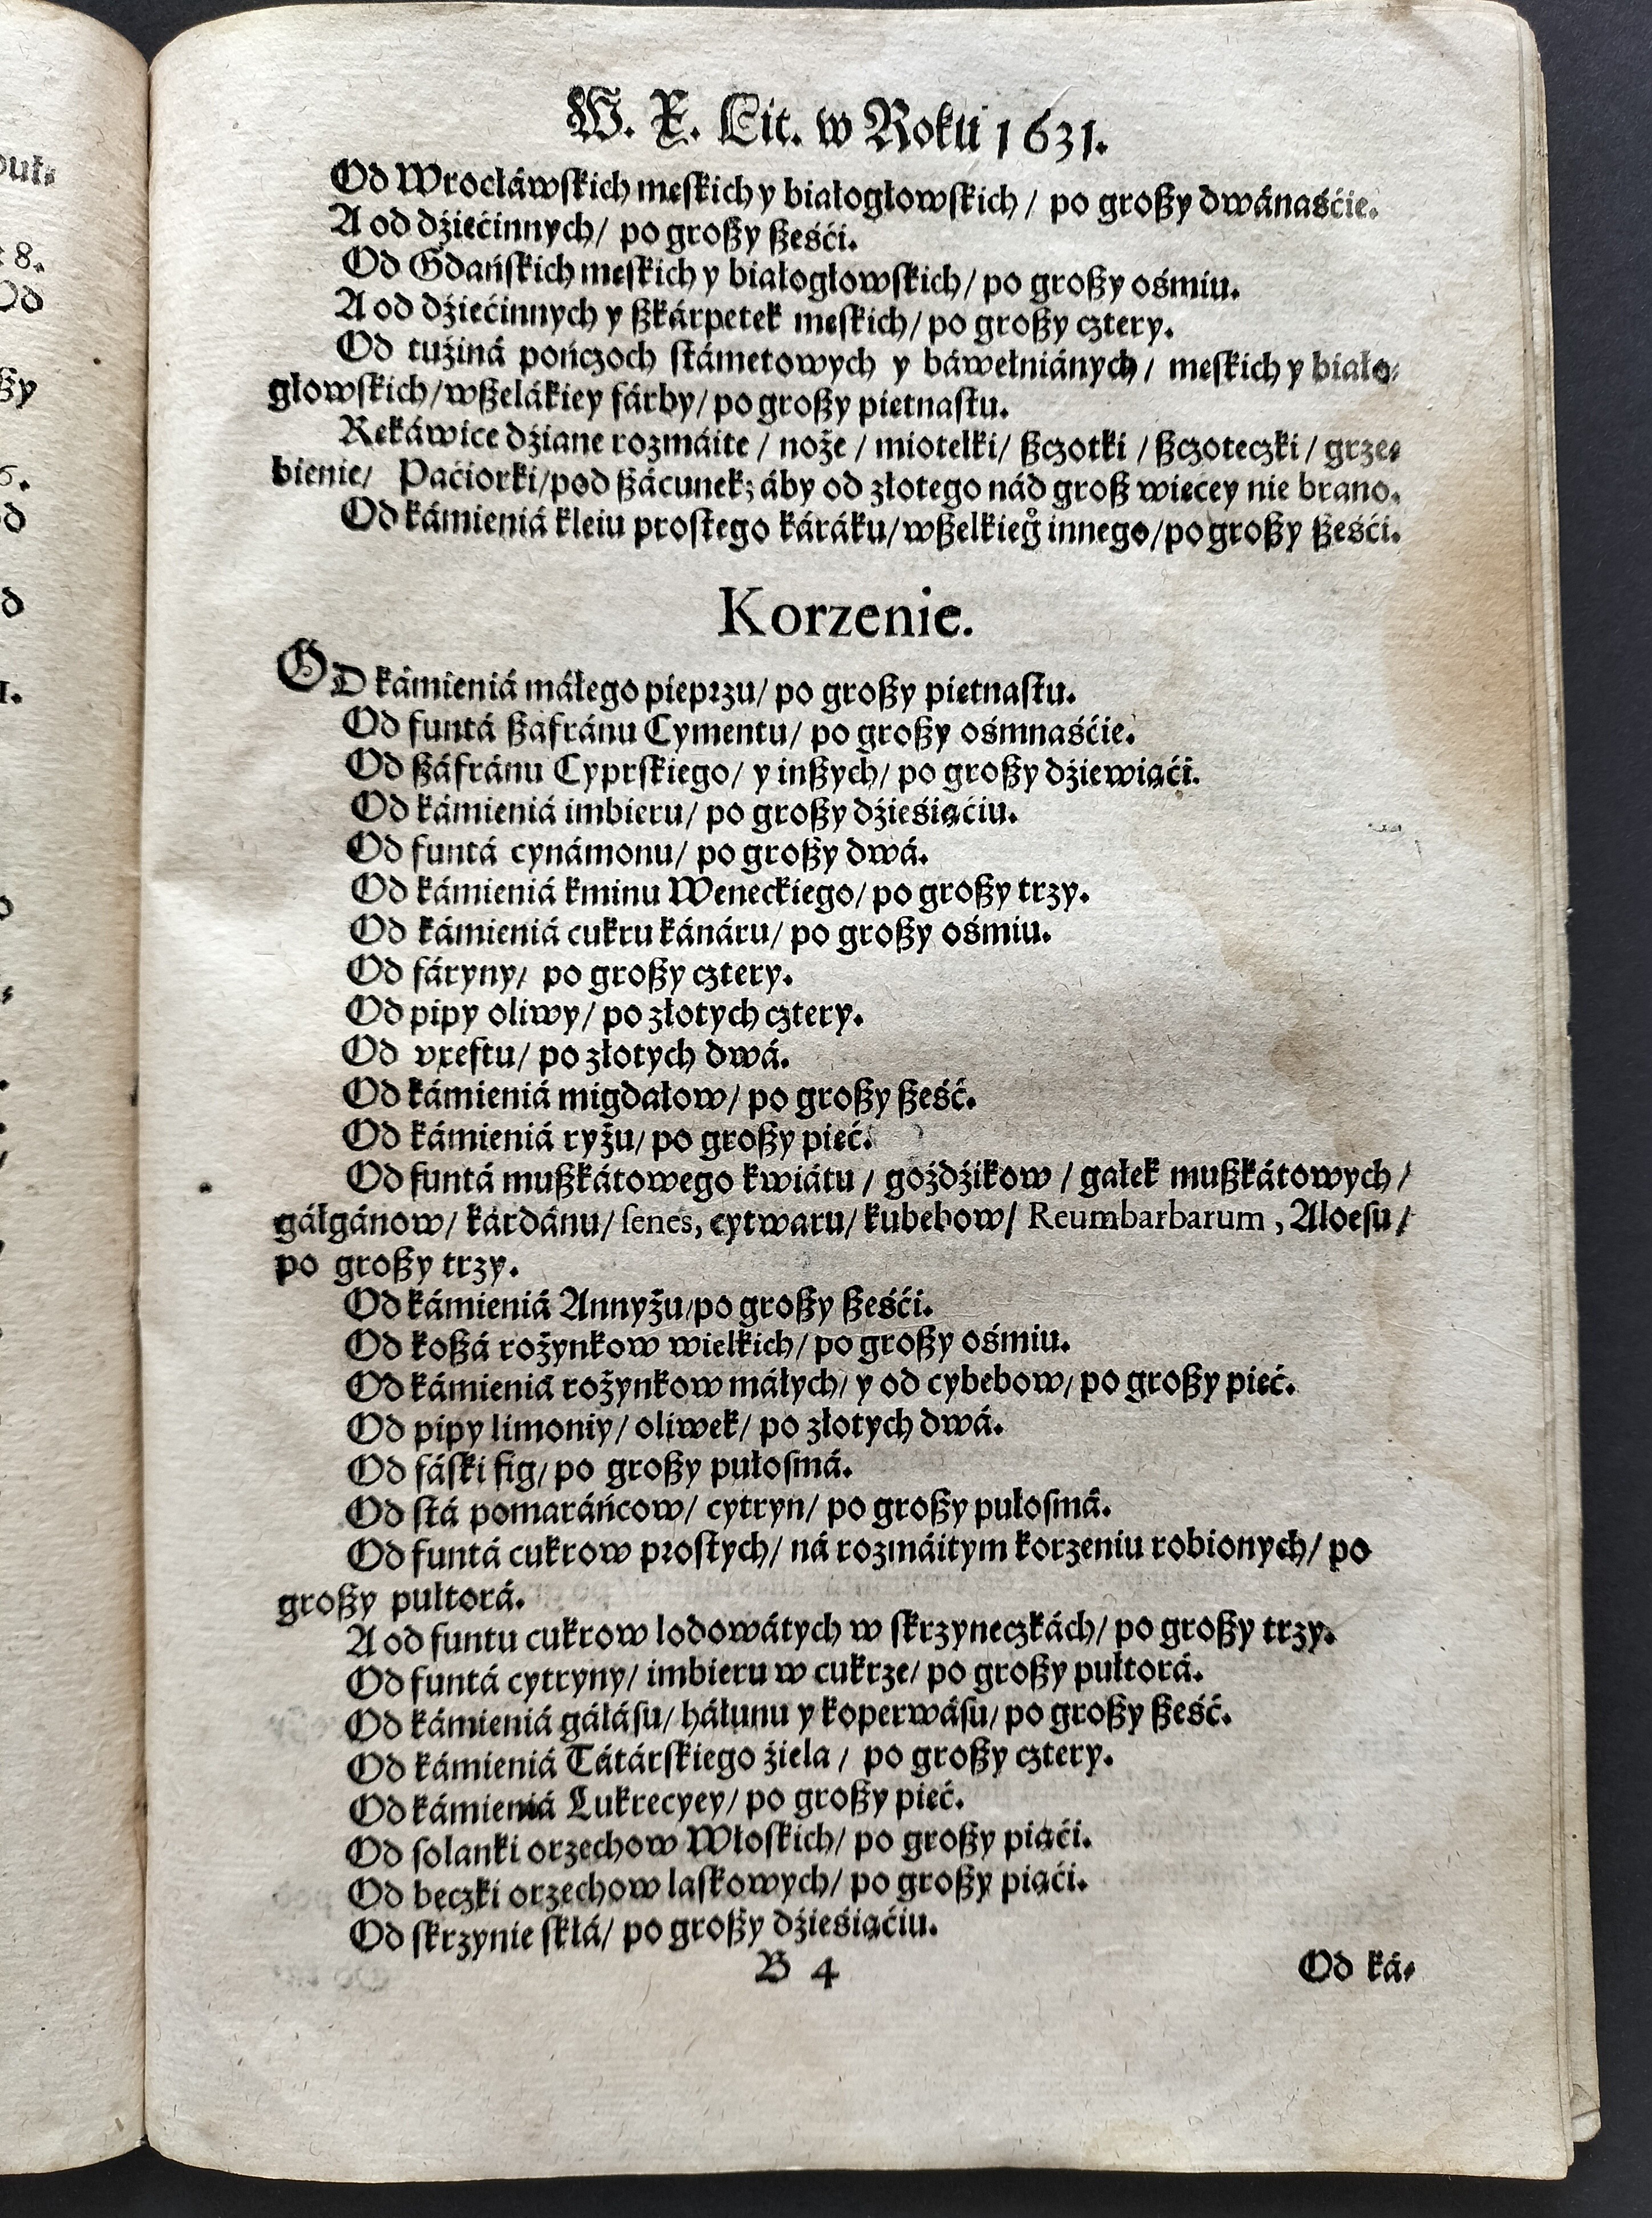 W. X. Lit. w Roku 1631.
Od Wrocłáwskich męskich y białogłowskich / po groszy dwánaśćie.
A od dźiećinnych / po groszy sześći.
Od Gdańskich męskich y białogłowskich / po groszy ośmiu.
A od dźiećinnych y szkárpetek męskich / po groszy cztery.
Od tuźiná pończoch stámetowych y báwełniánych / męskich y biało-
głowskich / wszelákiey fárby / po groszy piętnastu.
Rękáwice dźiane rozmáite / noże / miotełki / szczotki / szczoteczki / grze-
bienie / Paćiorki / pod szácunek; áby od złotego nád grosz więcey nie brano.
Od kámieniá kleiu prostego káráku / wszelkieg° innego / po groszy sześći.
Korzenie.
OD kámieniá máłego pieprzu / po groszy piętnastu.
Od funtá szafránu Cymentu / po groszy ośmnaśćie.
Od száfránu Cyprskiego / y inszych / po groszy dźiewiąći.
Od kámieniá imbieru / po groszy dźieśiąćiu.
Od funtá cynámonu / po groszy dwá.
Od kámieniá kminu Weneckiego / po groszy trzy.
Od kámieniá cukru kánáru / po groszy ośmiu.
Od fáryny / po groszy cztery.
Od pipy oliwy / po złotych cztery.
Od vxeftu / po złotych dwá.
Od kámieniá migdałow / po groszy sześć.
Od kámieniá ryżu / po groszy pięć.
Od funtá muszkátowego kwiátu / goźdźikow / gałek muszkátowych /
gáłgánow / kárdánu / senes, cytwaru / kubebow / Reumbarbarum , Aloesu /
po groszy trzy.
Od kámieniá Annyżu / po groszy sześći.
Od koszá rożynkow wielkich / po groszy ośmiu.
Od kámieniá rożynkow máłych / y od cybebow / po groszy pięć.
Od pipy limoniy / oliwek / po złotych dwá.
Od fáski fig / po groszy pułosmá.
Od stá pomaráńcow / cytryn / po groszy pułosmá.
Od funtá cukrow prostych / ná rozmáitym korzeniu robionych / po
groszy pułtorá.
A od funtu cukrow lodowátych w skrzyneczkách / po groszy trzy.
Od funtá cytryny / imbieru w cukrze / po groszy pułtorá.
Od kámieniá gáłásu / háłunu y koperwásu / po groszy sześć.
Od kámieniá Tátárskiego źiela / po groszy cztery.
Od kámieniá Lukrecyey / po groszy pięć.
Od solanki orzechow Włoskich / po groszy piąći.
Od beczki orzechow laskowych / po groszy piąći.
Od skrzynie skłá / po groszy dźieśiąćiu.
B 4
Od ká-